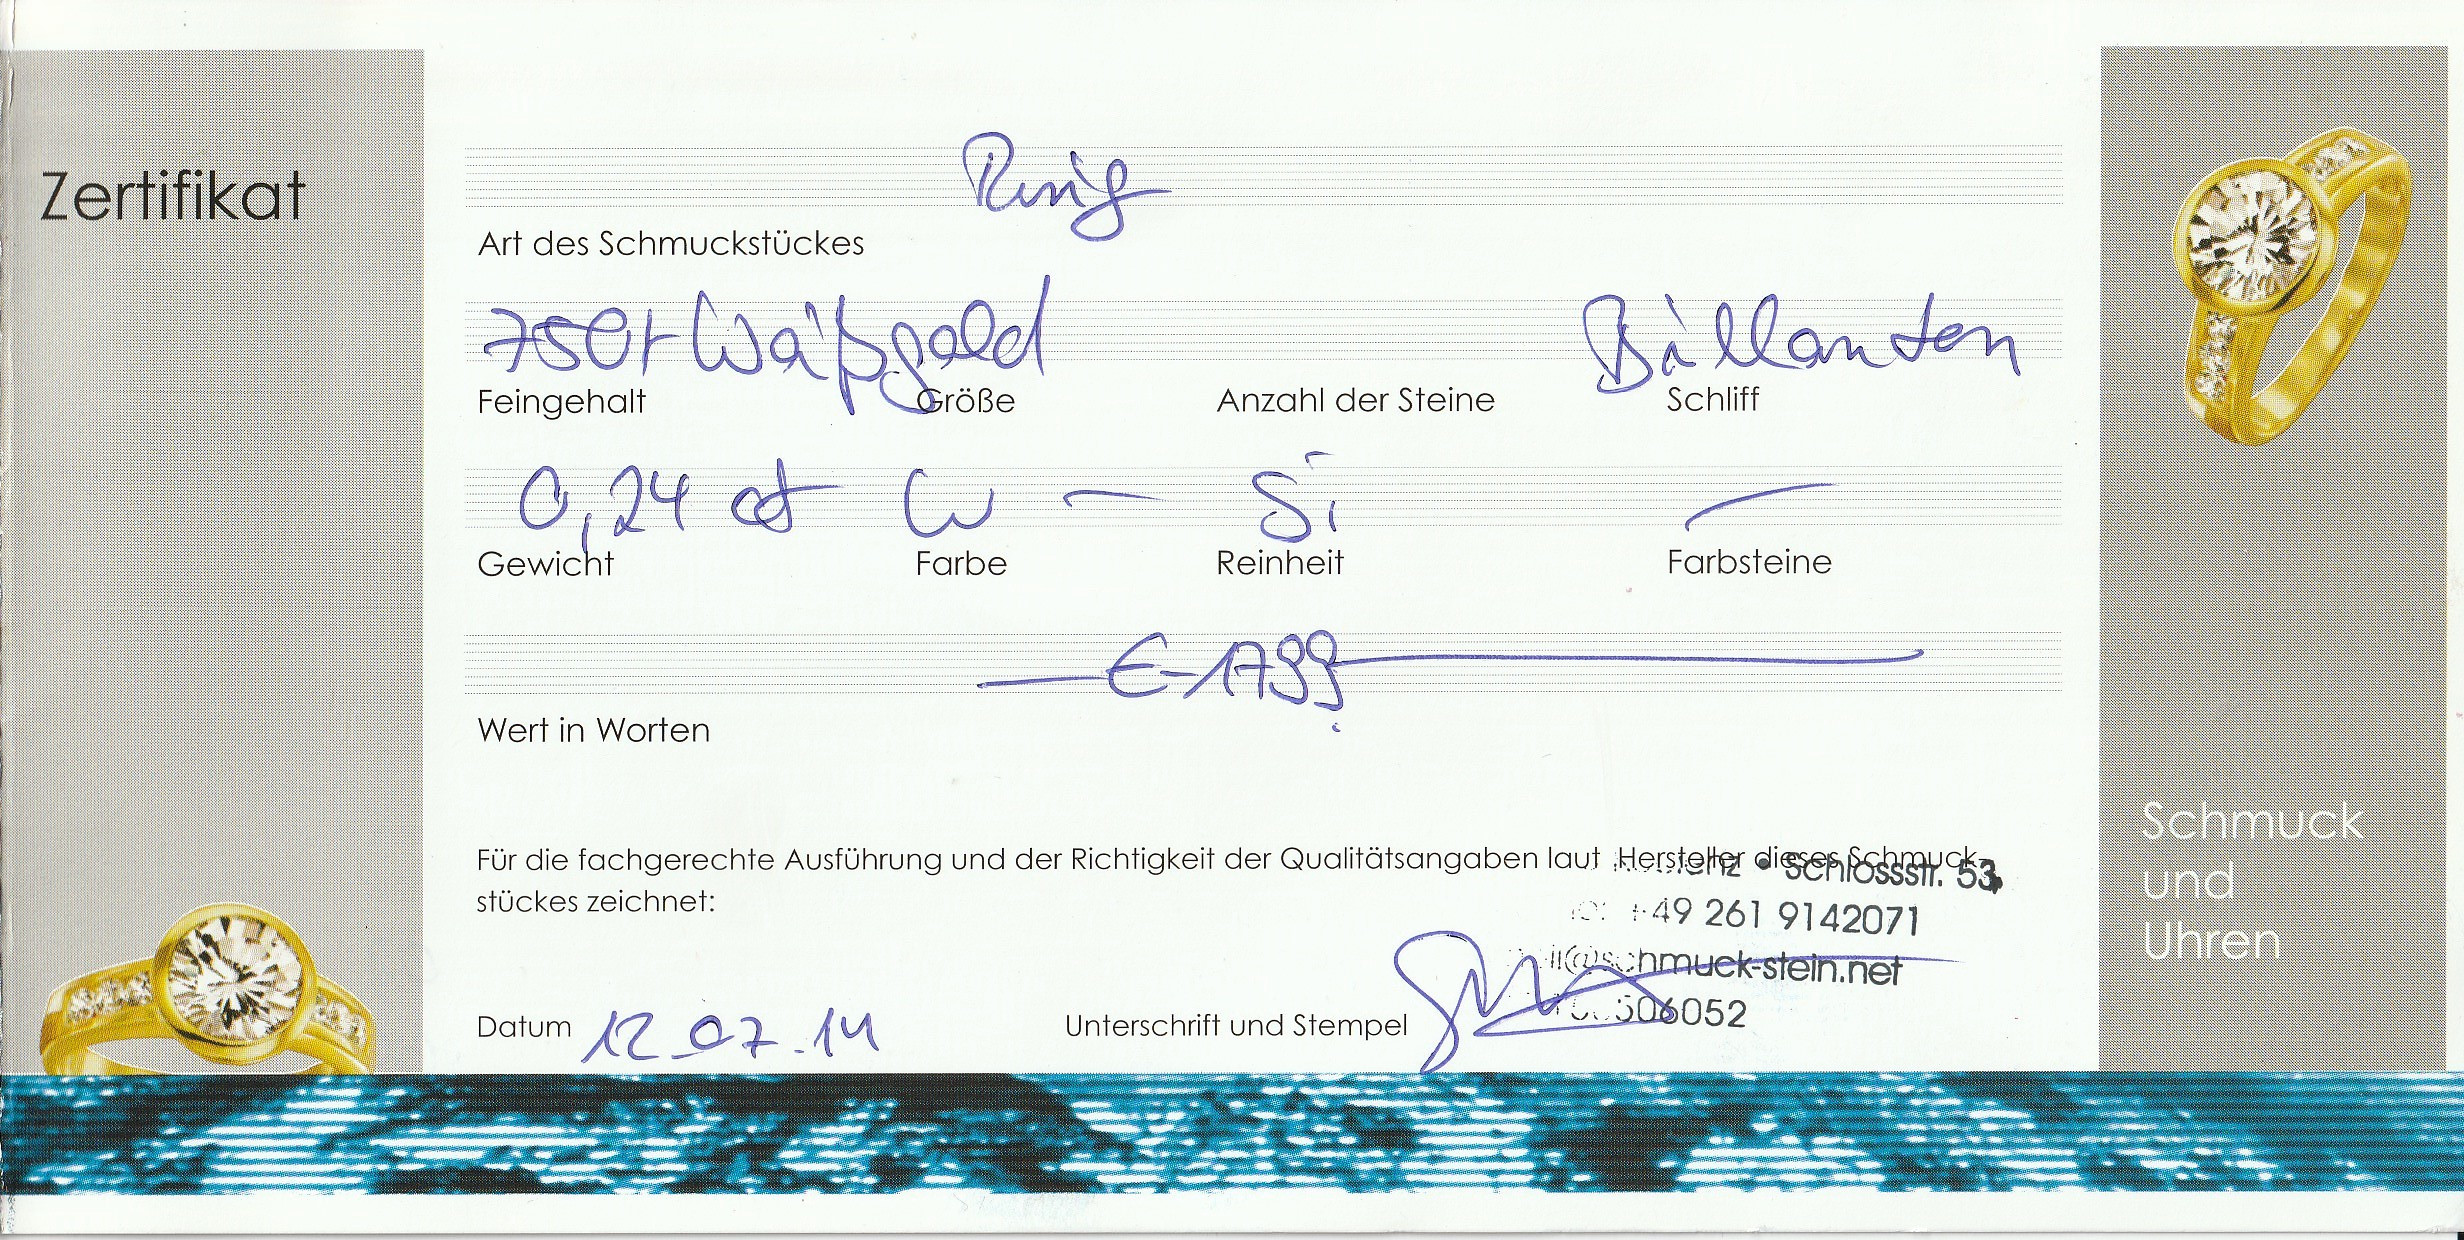 Zertifikat
Ring
Art des Schmuckstückes
750er Weißgold Brillanten
Feingehalt Größe Anzahl der Steine Schliff
0,24 ct W — Si —
Gewicht Farbe Reinheit Farbsteine
— €-1799 —
Wert in Worten
Für die fachgerechte Ausführung und der Richtigkeit der Qualitätsangaben laut Hersteller dieses Schmuck-
stückes zeichnet:
Schlossstr. 53
+49 261 9142071
schmuck-stein.net
506052
Datum 12.07.14 Unterschrift und Stempel
Schmuck
und
Uhren